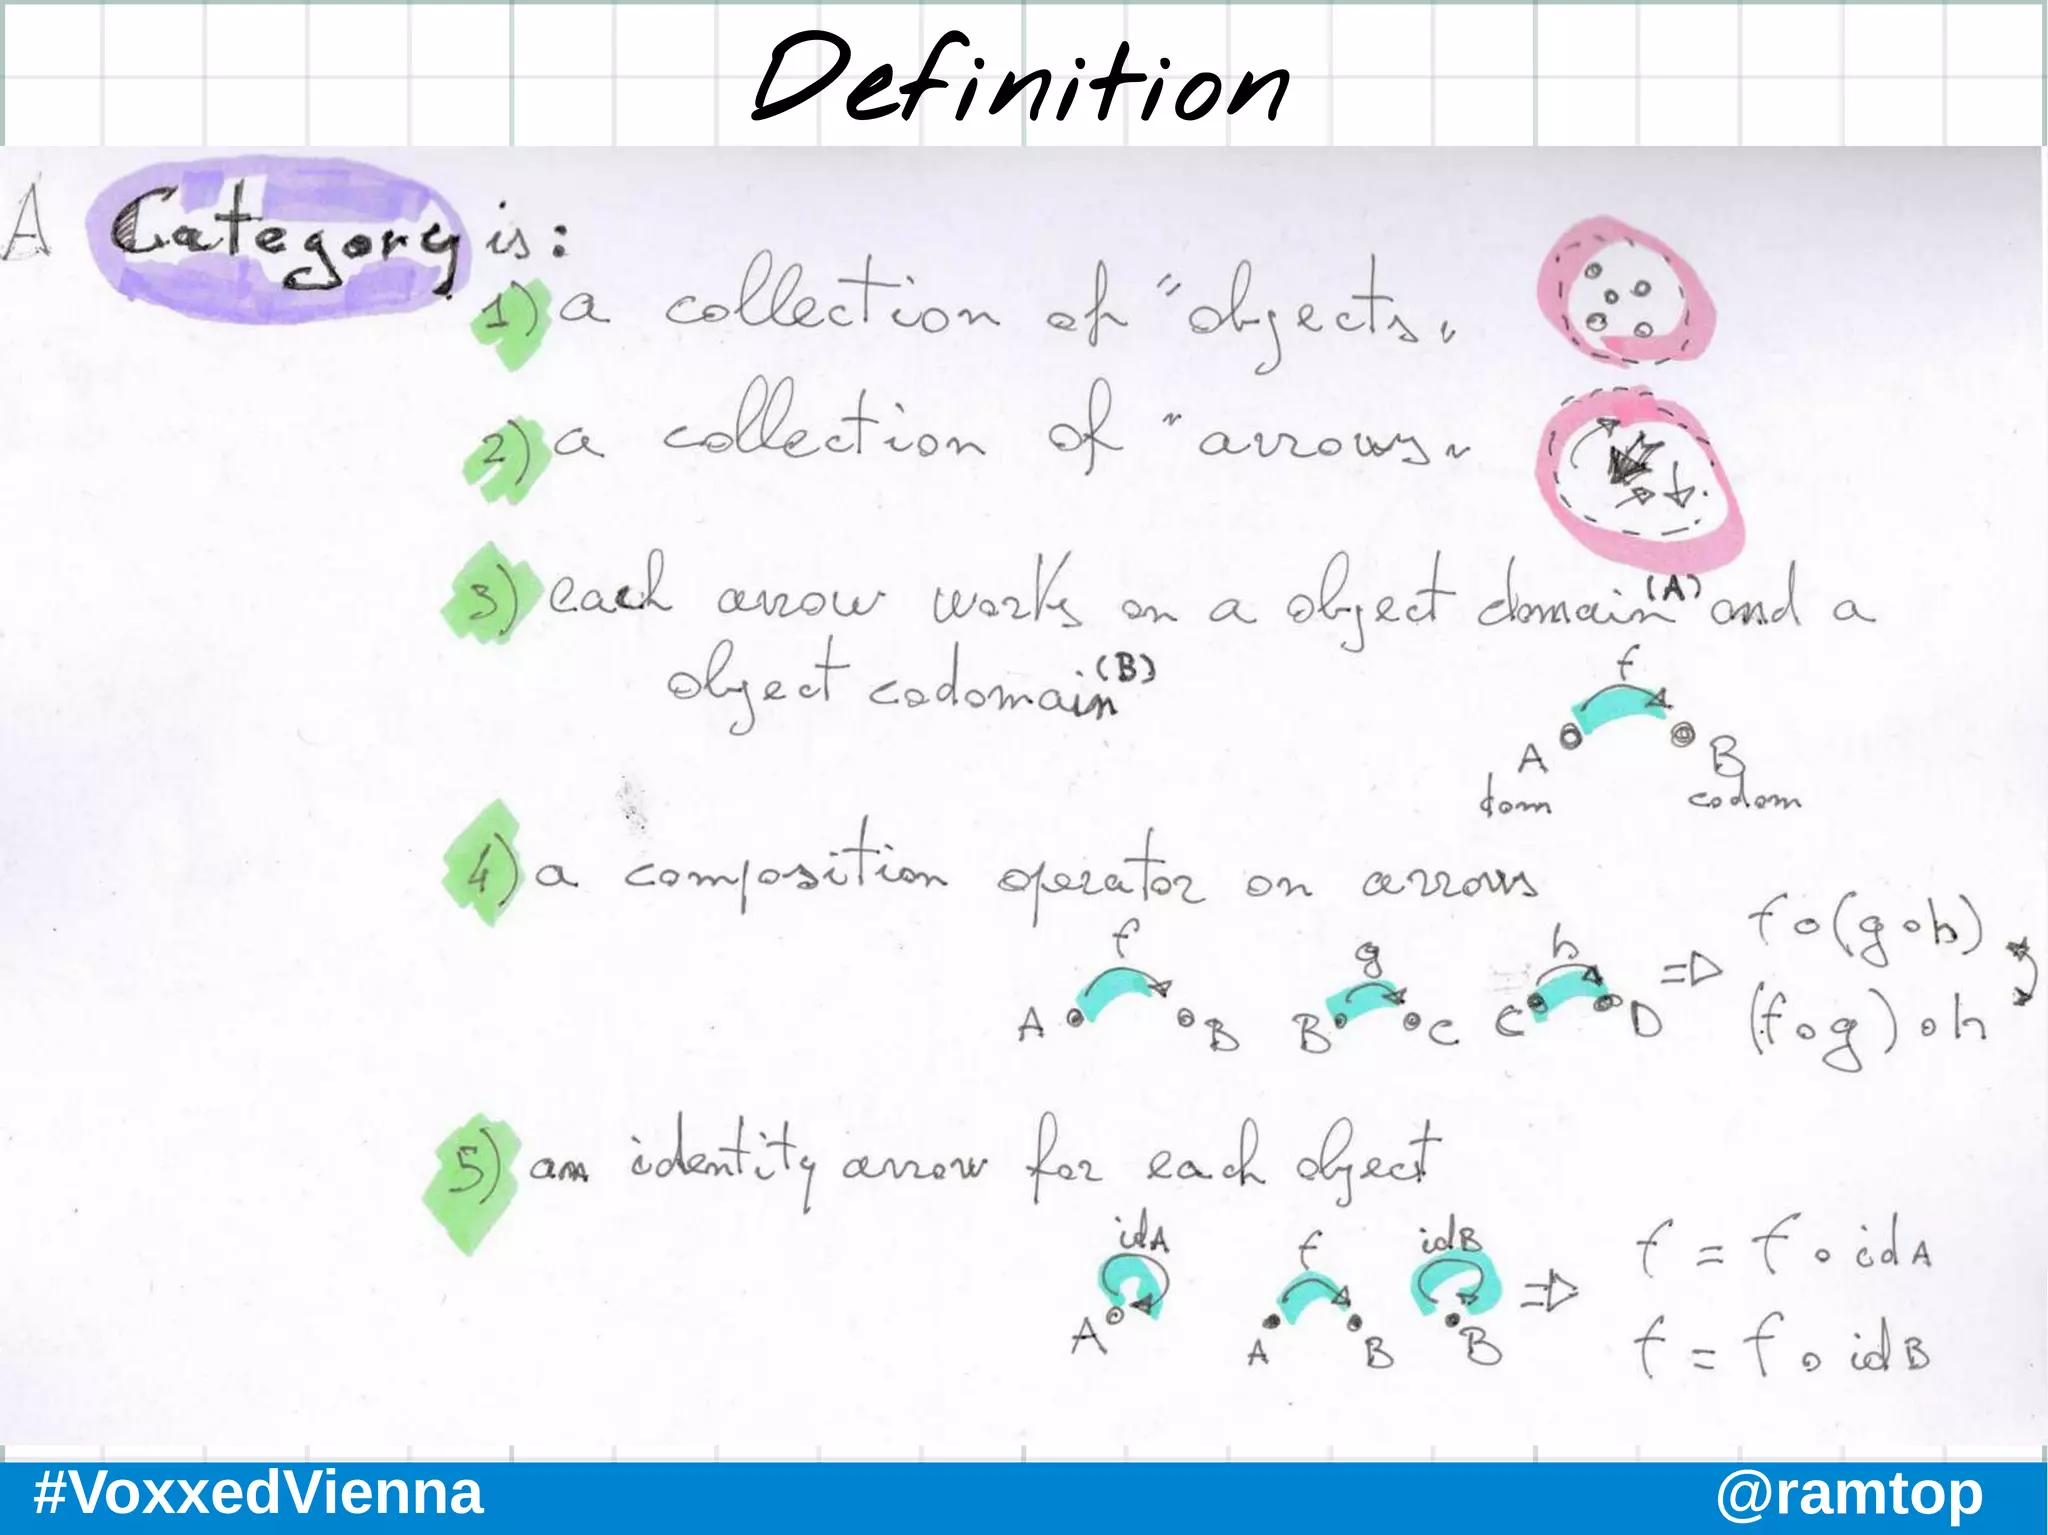 Definition
A Category is:
1) a collection of "objects"
2) a collection of "arrows"
3) each arrow works on a object domain (A) and a
object codomain (B)
f
A B
dom codom
4) a composition operator on arrows
f g h
A B B C C D => f o (g o h)
(f o g) o h
5) an identity arrow for each object
idA f idB
A A B B => f = f o idA
f = f o idB
#VoxxedVienna @ramtop